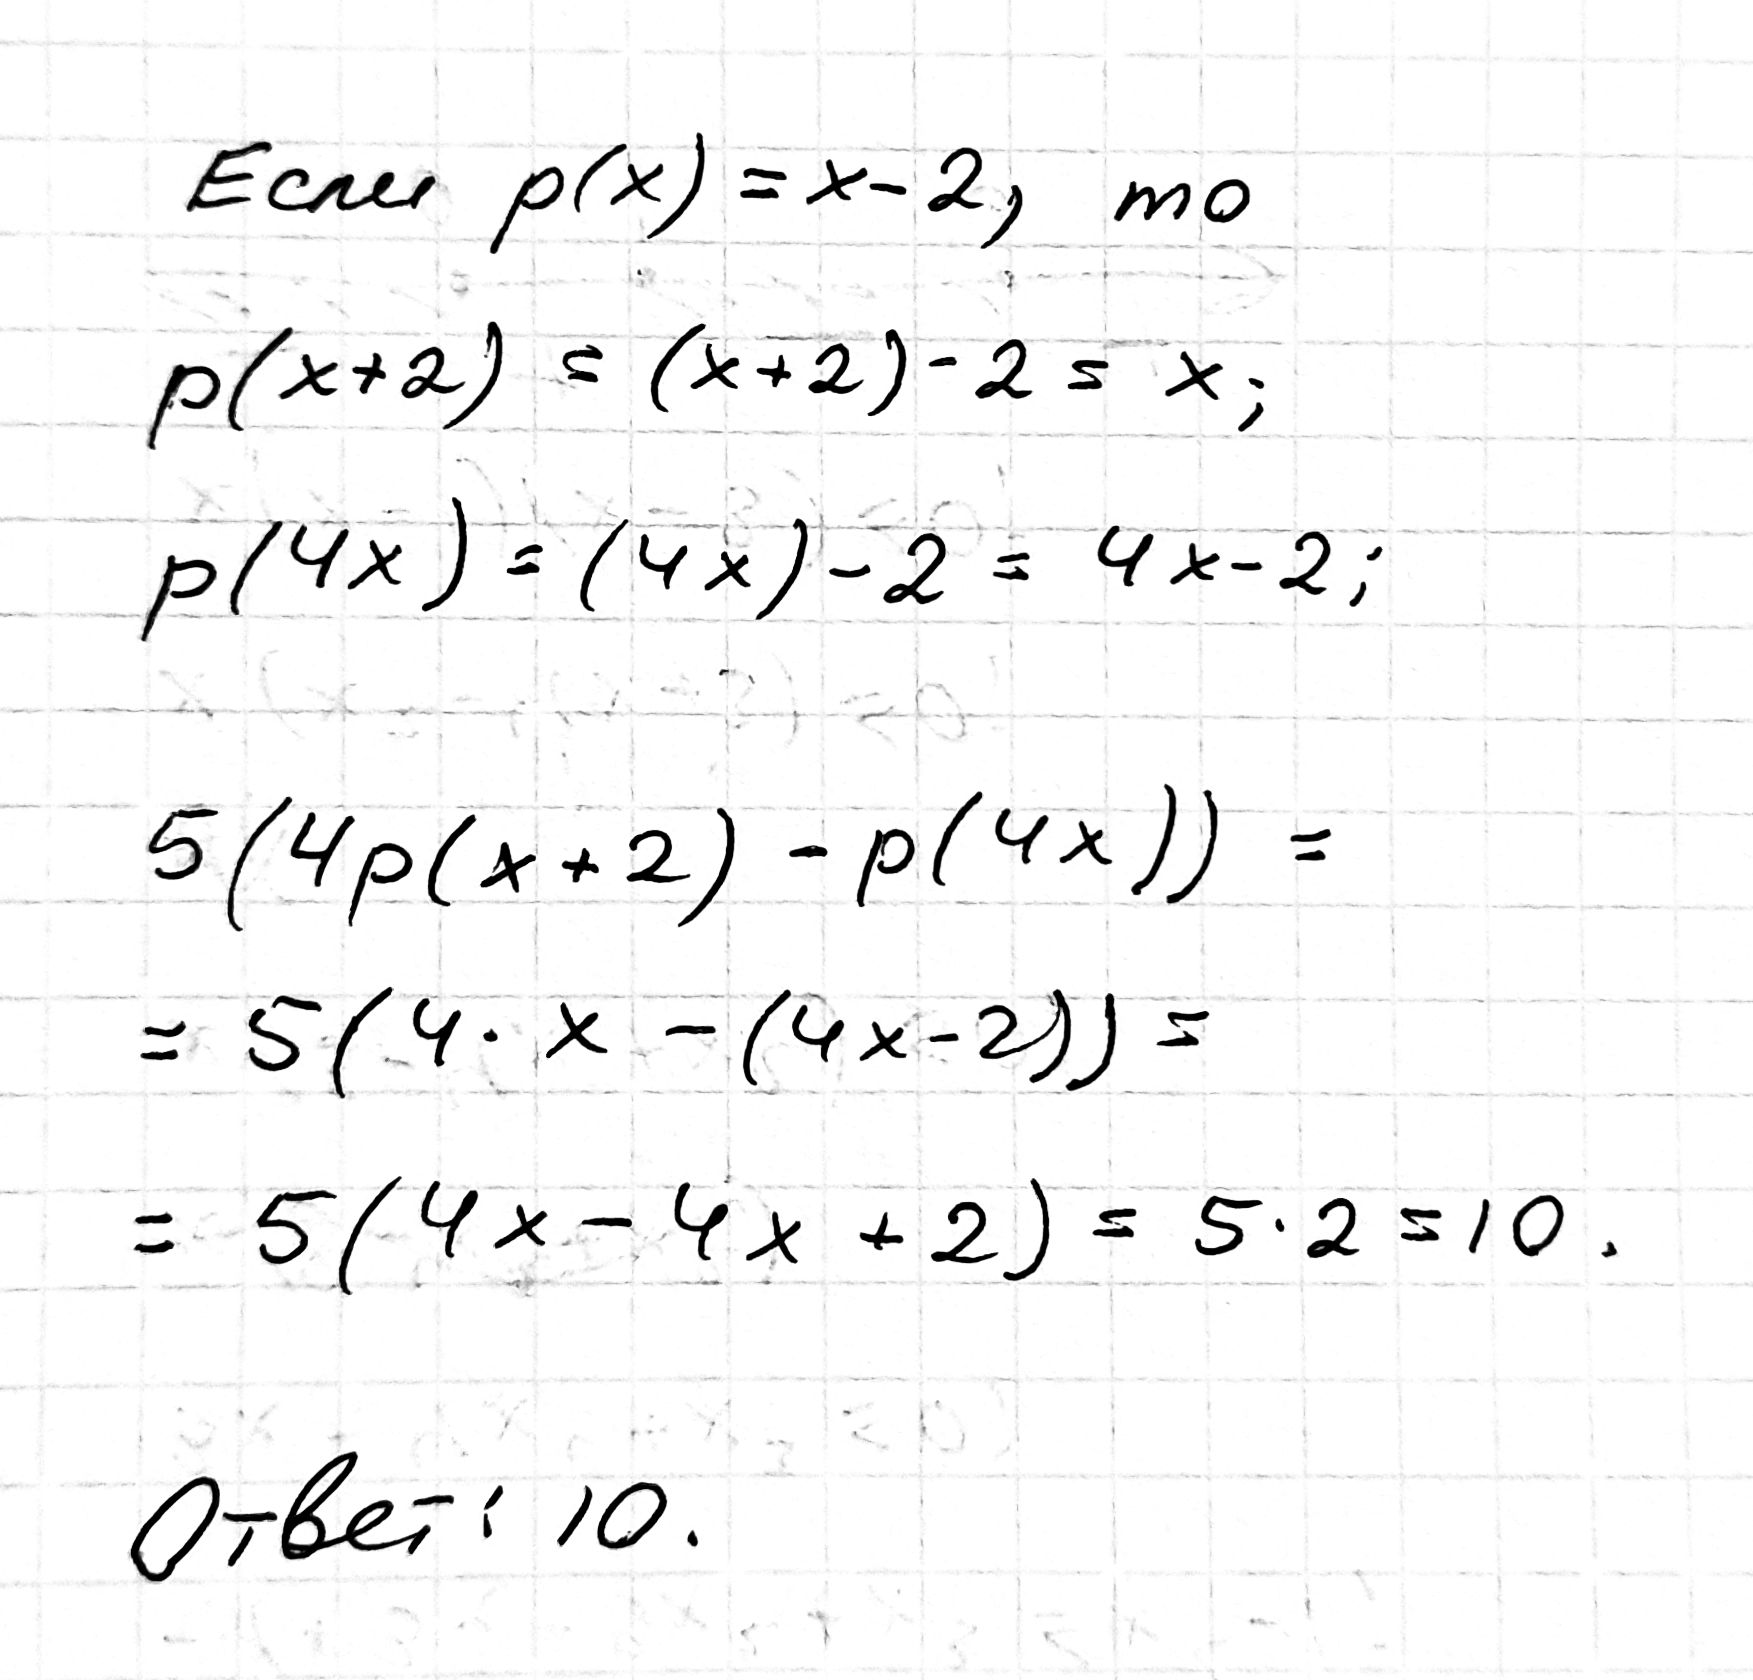 Если p(x) = x - 2, то
p(x+2) = (x+2) - 2 = x;
p(4x) = (4x) - 2 = 4x - 2;
5(4p(x+2) - p(4x)) =
= 5(4 · x - (4x-2)) =
= 5(4x - 4x + 2) = 5 · 2 = 10.
Ответ: 10.